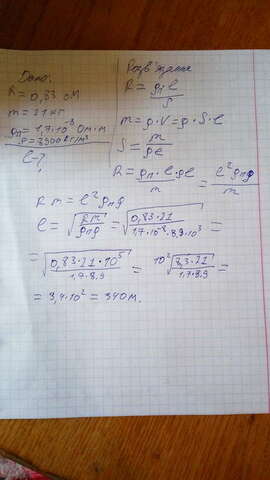 Дано:
R = 0,83 Ом
m = 21 кг
ρп = 1,7·10⁻⁸ Ом·м
ρ = 8900 кг/м³
l - ?
Розв'язання
R = ρп l / S
m = ρ·V = ρ·S·l
S = m / ρl
R = ρп·l·ρl / m = l² ρп ρ / m
R m = l² ρп ρ
l = √(Rm / ρп ρ) = √(0,83·21 / 1,7·10⁻⁸·8,9·10³) =
= √(0,83·21·10⁵ / 1,7·8,9) = 10²√(8,3·21 / 1,7·8,9) =
= 3,4·10² = 340 м.